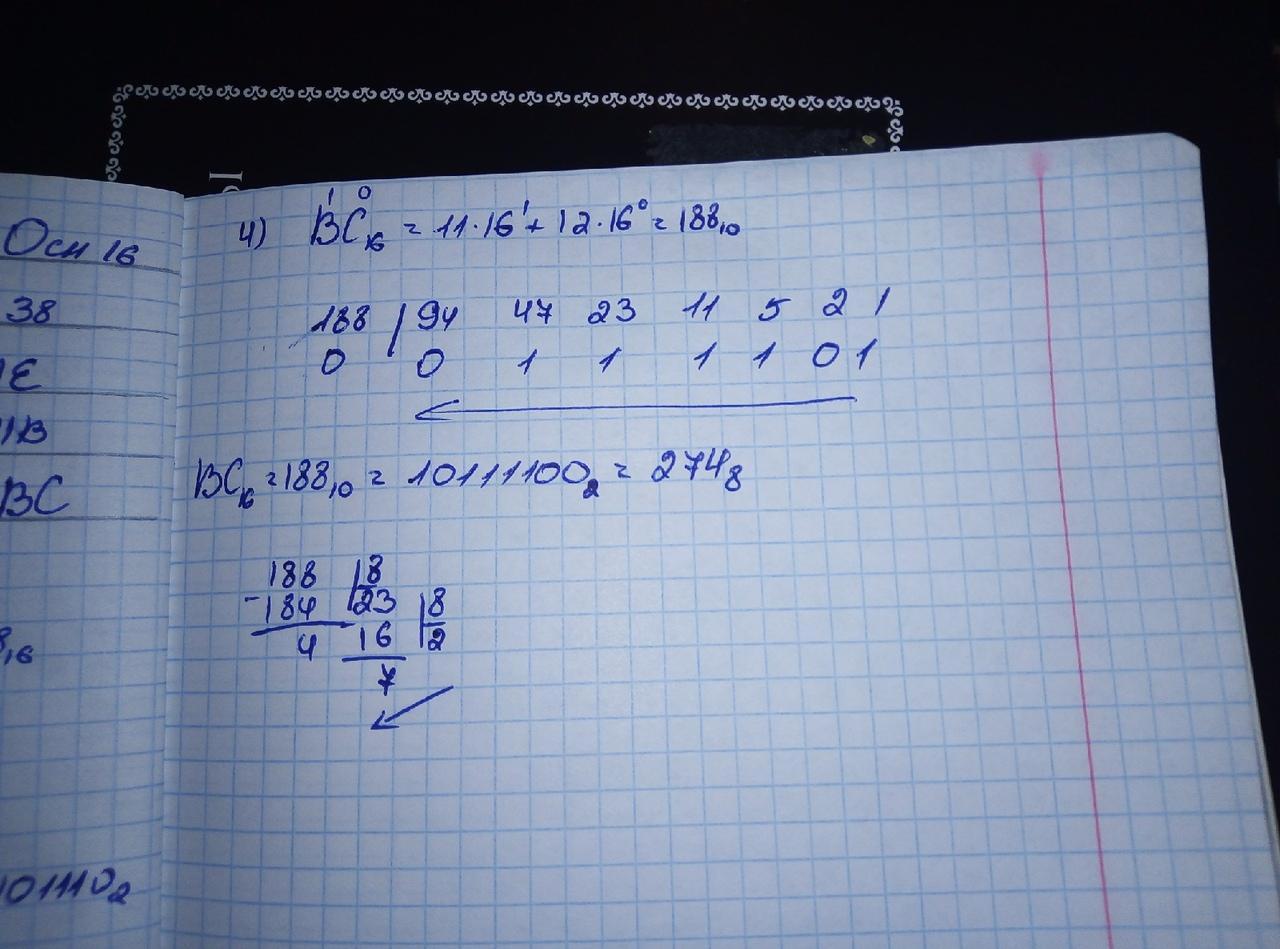 Осн 16
38
1E
1B
BC
16
101110₂
1 0
4) BC₁₆ = 11·16¹ + 12·16⁰ = 188₁₀
188 | 94 47 23 11 5 2 1
0 0 1 1 1 1 0 1
BC₁₆ = 188₁₀ = 10111100₂ = 274₈
188 |8
-184 23 |8
4 16 2
7